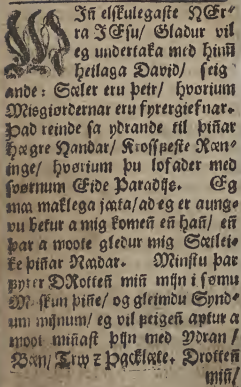 MIñ elskulegaste HEr-
ra JEsu/ Gladur vil
eg undertaka med hinū
heilaga David/ seig
ande: Sæler eru þeir/ hvorium
Misgiørdernar eru fyrergiefnar.
Þad reinde sa ydrande til þiñar
hægre Handar/ Krossfeste Ræn-
inge/ hvørium þu lofader med
svørnum Eide Paradijs. Eg
maa maklega jæta/ ad eg er aung-
vu betur a mig komeñ eñ hañ/ eñ
þar a moote gledur mig Sætlei-
ke þiñar Nædar. Minstu þar
fyrer DRotteñ miñ mijn i sømu
Miskun þiñe/ og gleimdu Synd-
um mijnum/ eg vil þeigeñ aptur a
moot miñast þijn med Ydran/
Bæn/ Trw ꝛ Þacklæte. Drotteñ
miñ/